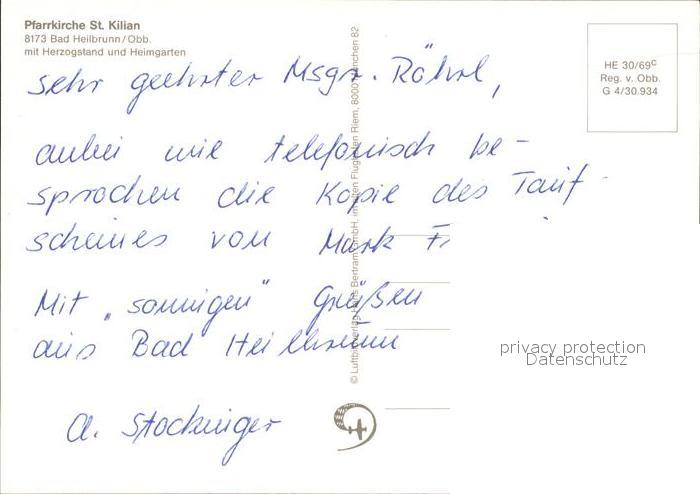 Pfarrkirche St. Kilian
8173 Bad Heilbrunn/Obb.
mit Herzogstand und Heimgarten
HE 30/69c
Reg. v. Obb.
G 4/30.934
sehr geehrter Msgr. Röhrl,
anbei wie telefonisch be-
sprochen die Kopie des Tauf-
scheines von Mark F
Mit „sonnigen" Grüßen
aus Bad Heilbrunn
A. Stockinger
© Luftbildverlag Hans Bertram GmbH, im alten Flughafen Riem, 8000 München 82
privacy protection
Datenschutz